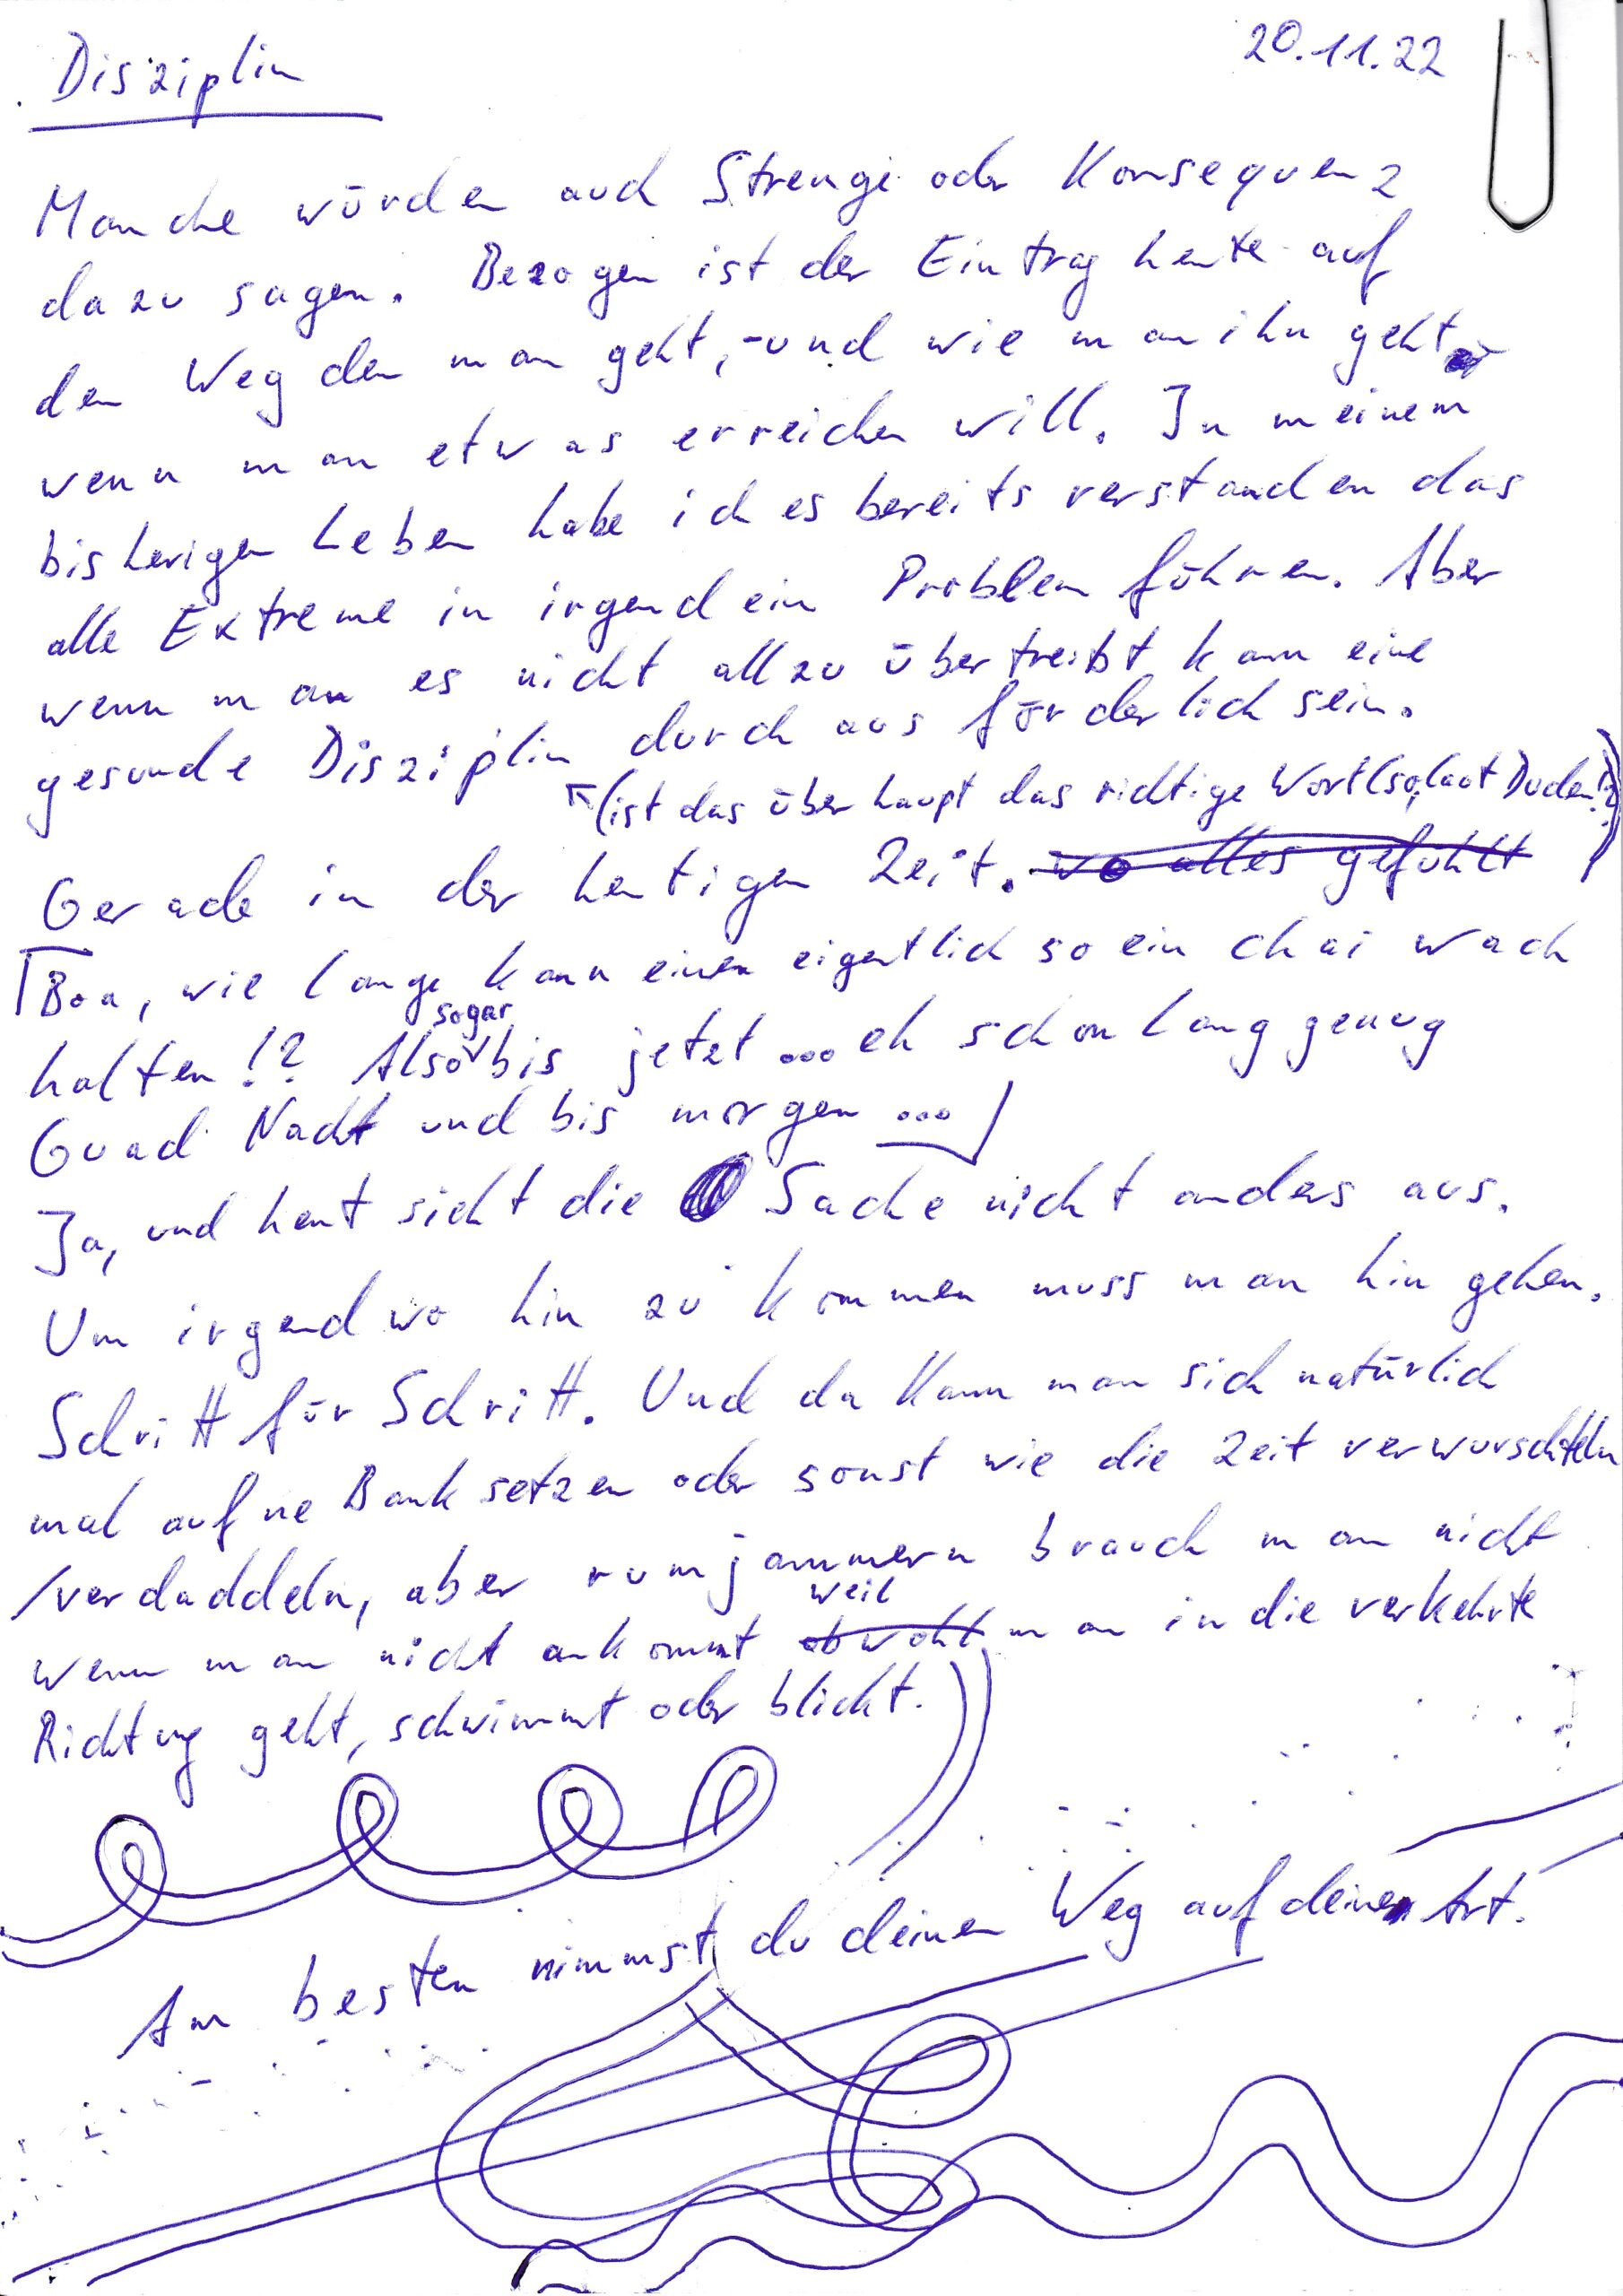 Disziplin
20.11.22
Manche würden auch Strenge oder Konsequenz
dazu sagen. Bezogen ist der Eintrag heute auf
den Weg den man geht, -und wie man ihn geht
wenn man etwas erreichen will. In meinem
bisherigen Leben habe ich es bereits verstanden das
alle Extreme in irgend ein Problem führen. Aber
wenn man es nicht allzu übertreibt kann eine
gesunde Disziplin durch aus förderlich sein.
(ist das überhaupt das richtige Wort (so, laut Duden!?))
Gerade in der heutigen Zeit. wo alles gefühlt
Boa, wie lange kann einen eigentlich so ein chai wach
halten!? Also sogar bis jetzt ... eh schon lang genug
Guad Nacht und bis morgen ...
Ja, und heut sieht die Sache nicht anders aus.
Um irgendwo hin zu kommen muss man hin gehen.
Schritt für Schritt. Und da kann man sich natürlich
mal auf ne Bank setzen oder sonst wie die Zeit verwurschteln
/verdaddeln, aber rumjammern brauch man nicht
wenn man nicht ankommt obwohl weil man in die verkehrte
Richtung geht, schwimmt oder blickt.
Am besten nimmst du deinen Weg auf deine Art.